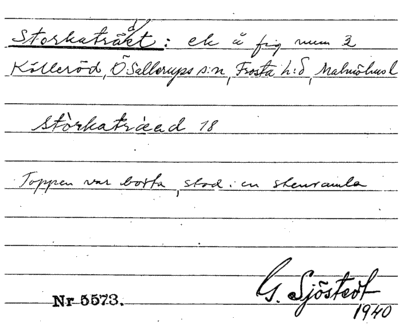 Storkaträkt: ek å fig num 2
Källeröd, Ö Sallerups s:n, Frosta h:d, Malmöhus l
Storkaträad 18
Toppen var borta, stod i en stenramla
G. Sjöstedt
Nr 5573. 1940